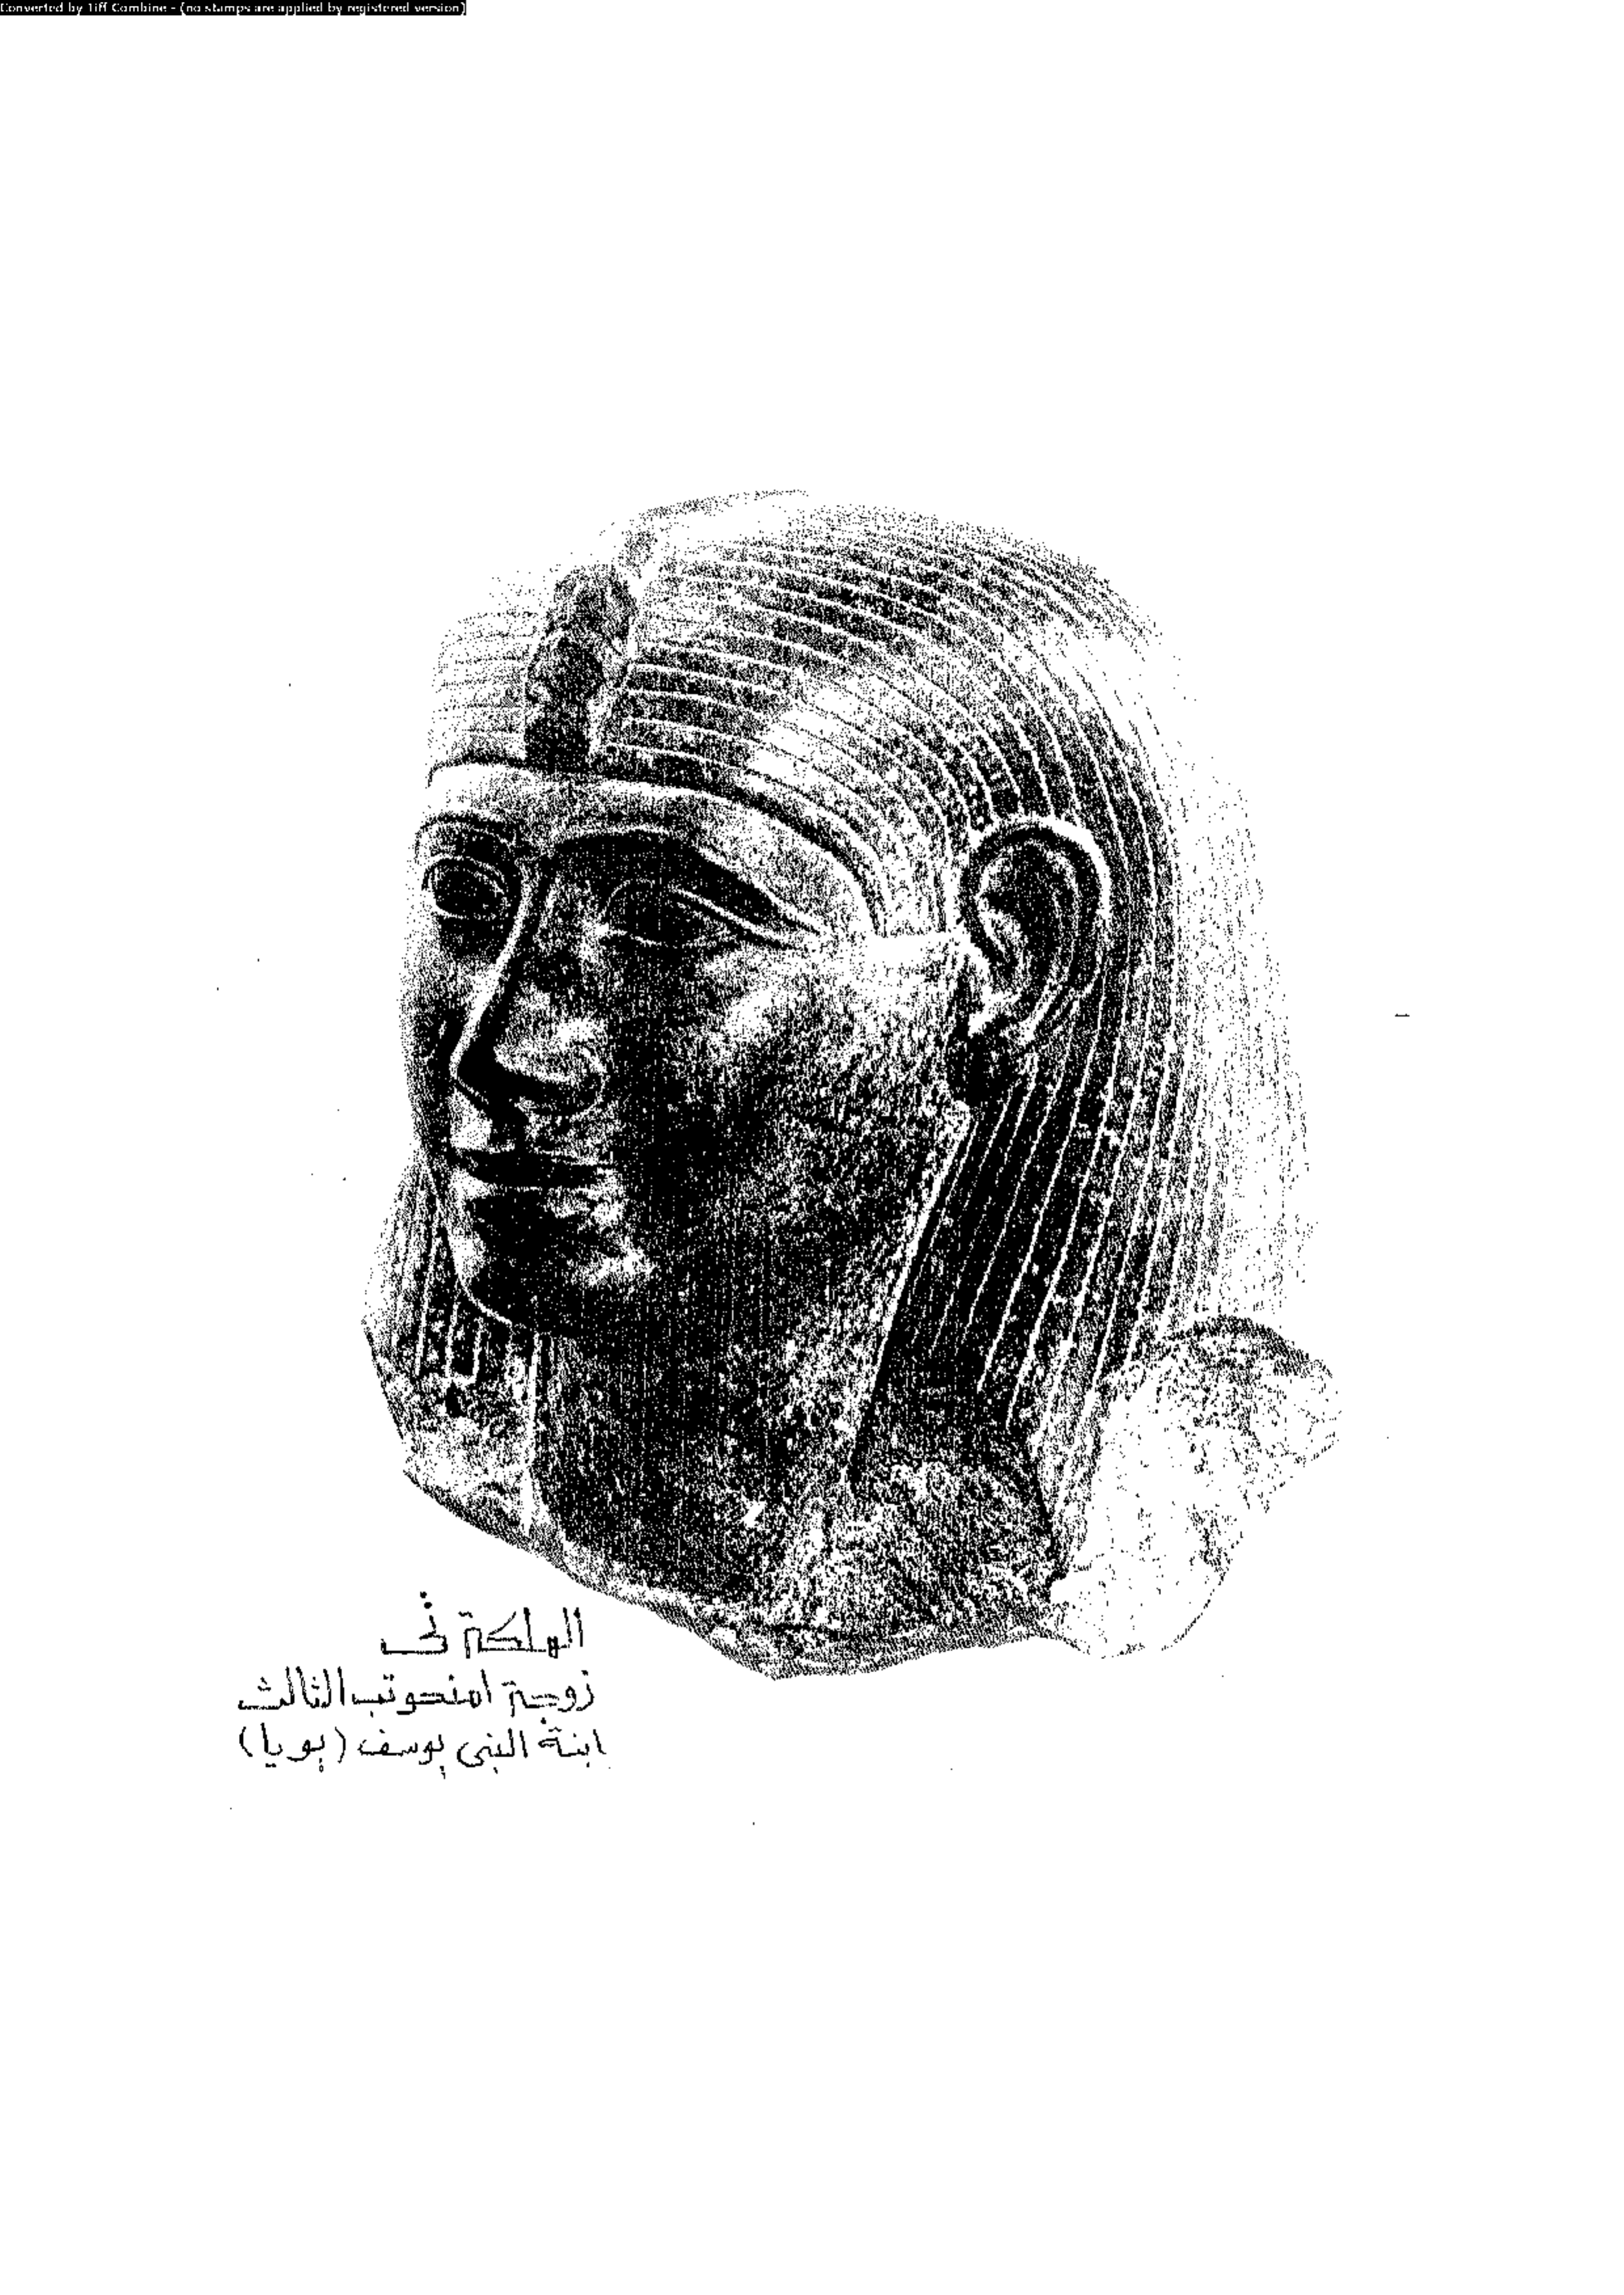 Converted by Tiff Combine - (no stamps are applied by registered version)
الملكة تى
زوجة امنحوتب الثالث
ابنة النبى يوسف (يويا)